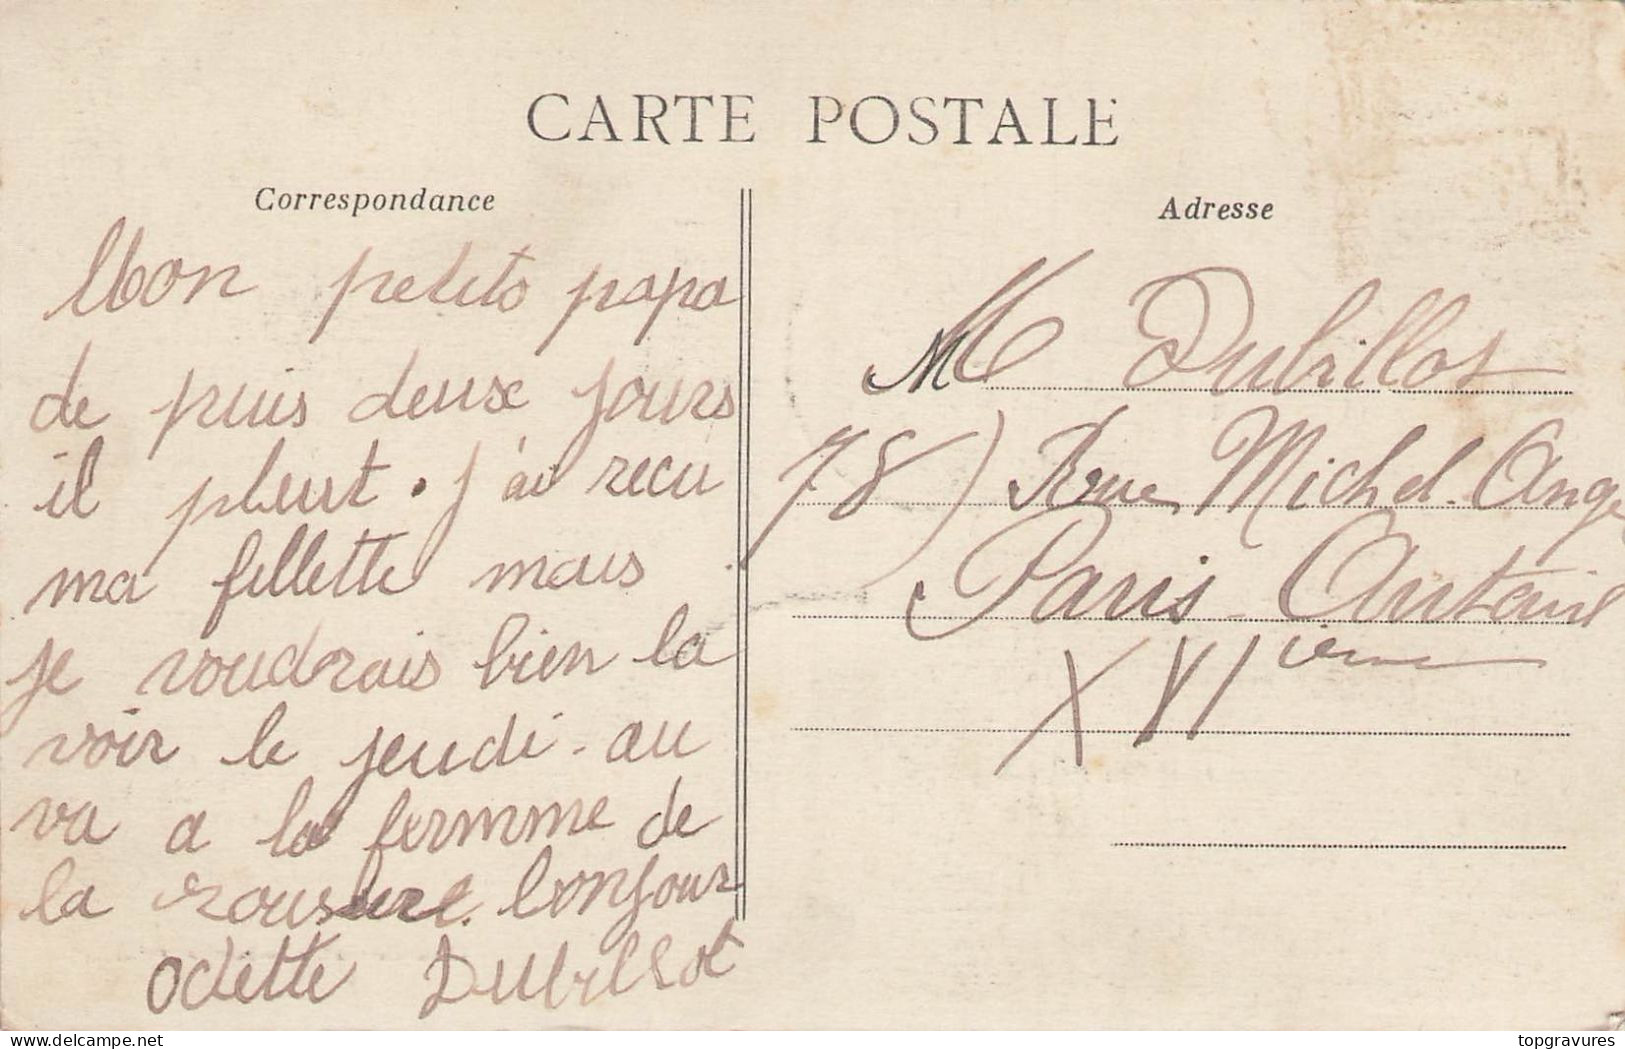 CARTE POSTALE
Correspondance
Mon petits papa
de puis deux jours
il pleut. j'ai recu
ma fillette mais
je voudrais bien la
voir le jeudi - au
va a la fermme de
la bonjour
Odette Dubillot
Adresse
M Dubillot
78) Rue Michel-Ange
Paris - Auteuil
XVIième
delcampe.net
topgravures